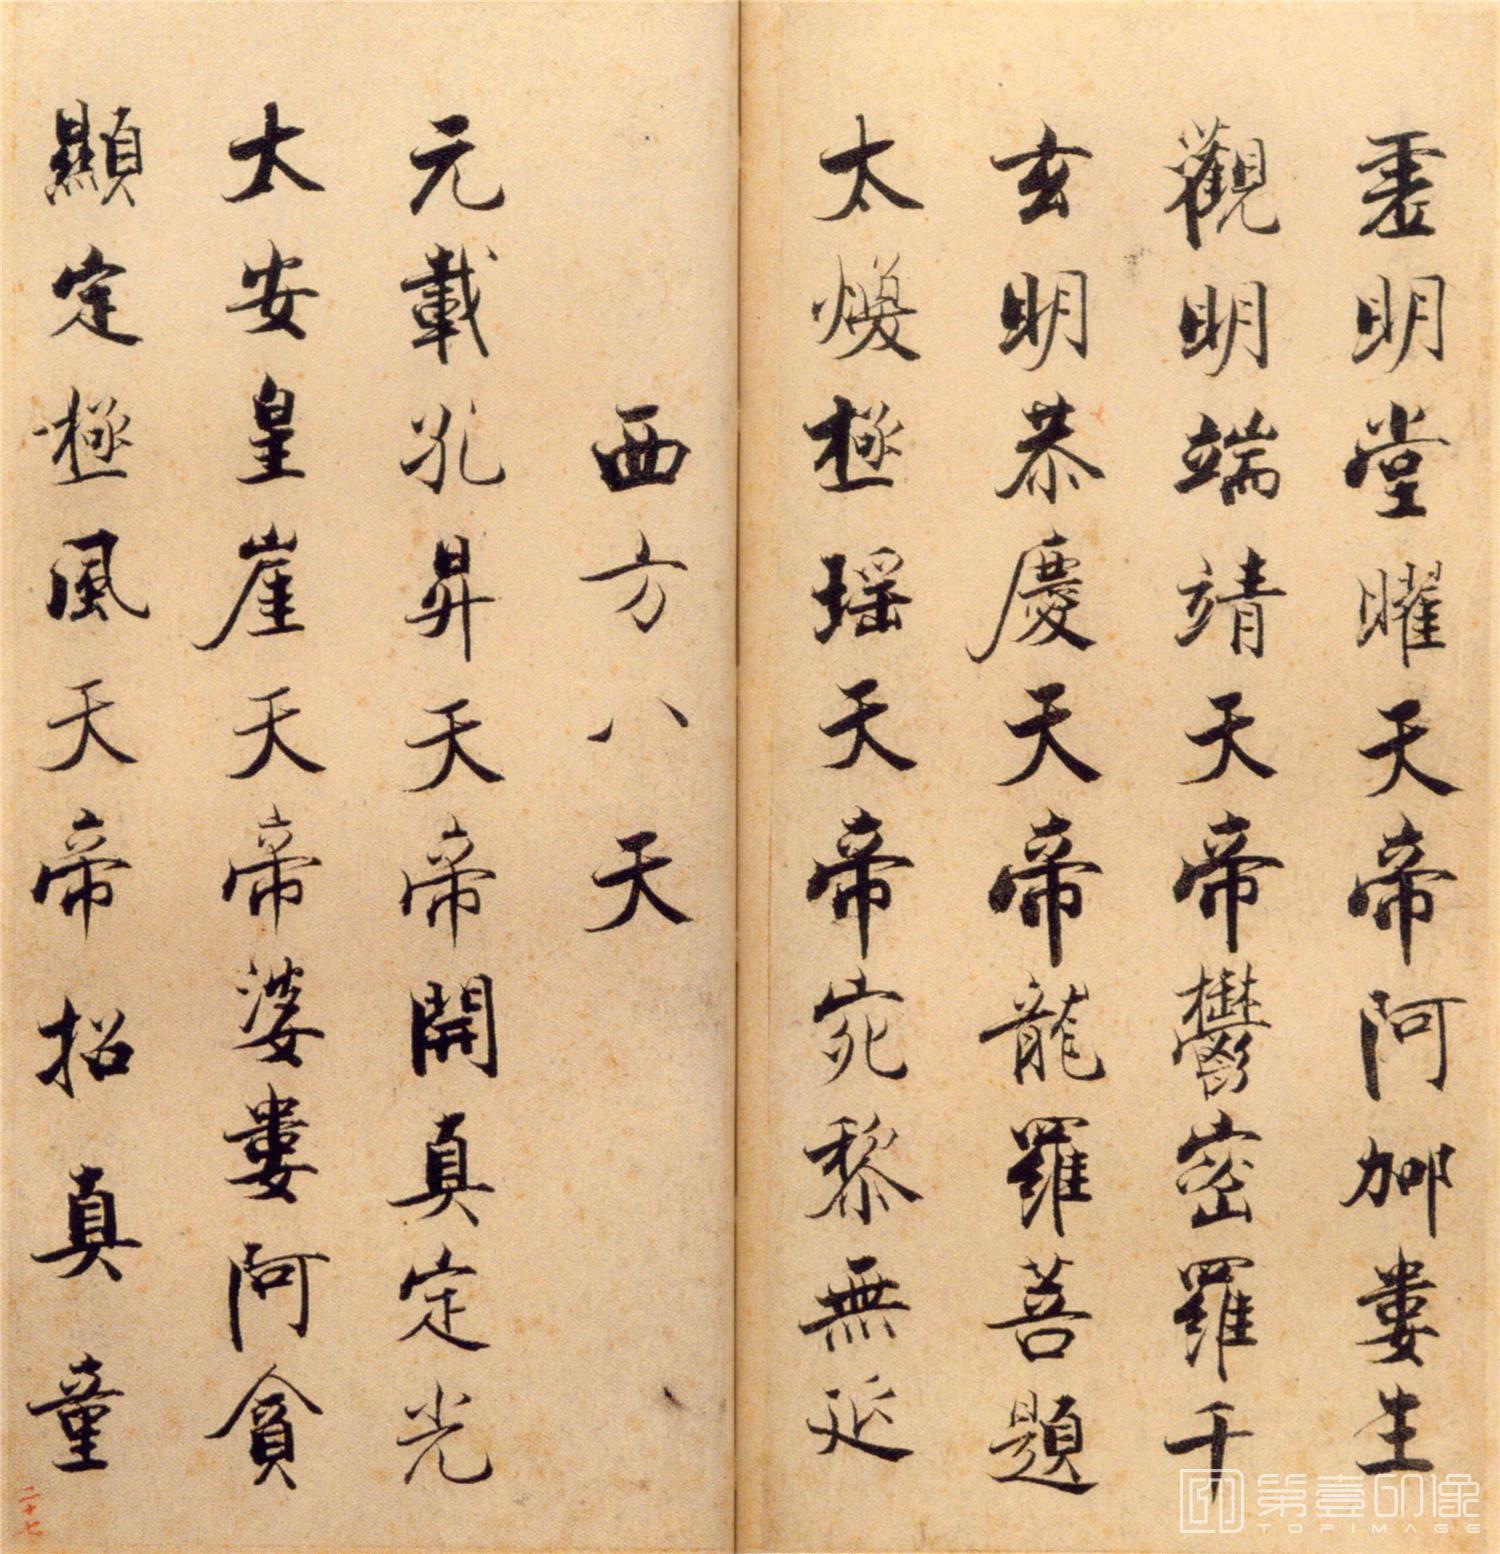 虛明堂曜天帝阿加那婁生
觀明端靖天帝鬱密羅千
玄明恭慶天帝龍羅菩題
太煥極瑶天帝宛黎無延
西方八天
元載孔昇天帝開真定光
太安皇崖天帝婆婁阿貪
顯定極風天帝招真童
二十七
第壹印像
TOPIMAGE